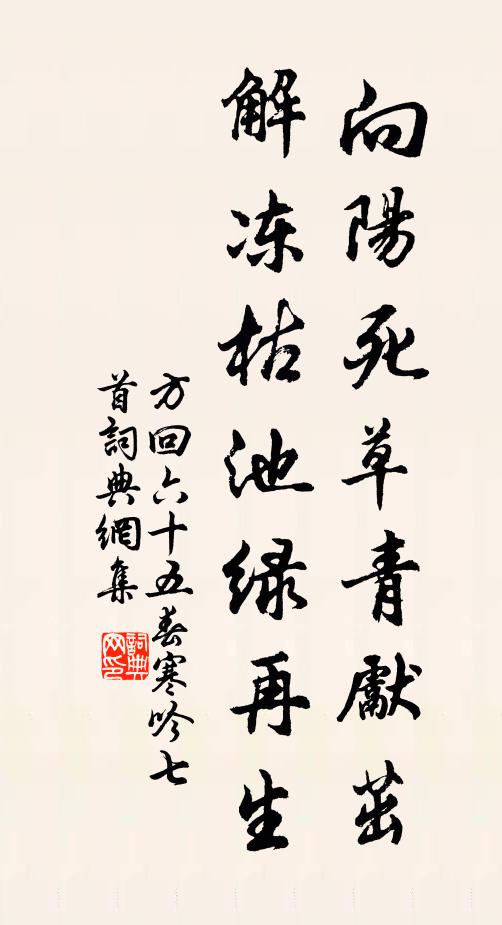 向陽死草青獻茁
解冻枯池緑再生
方回六十五春寒吟七
首詞典網集
詞典網印